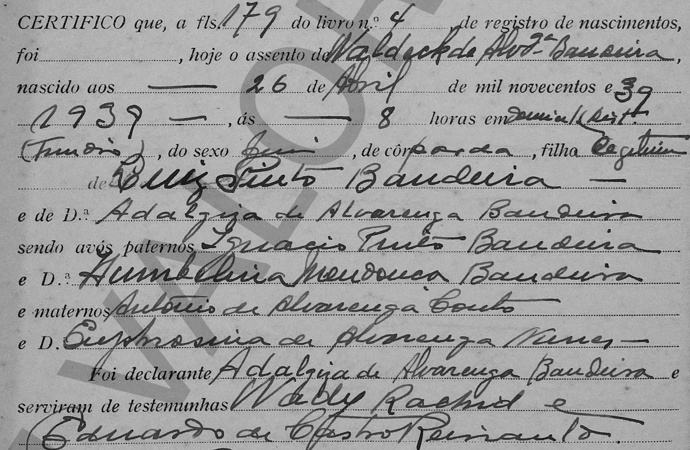 CERTIFICO que, a fls. 179 do livro n.º 4 de registro de nascimentos,
foi , hoje o assento de Waldeck de Alvª Bandeira,
nascido aos — 26 de Abril de mil novecentos e 39
1939 —, ás — 8 horas em
, do sexo , de côr parda, filha
de Luiz Pinto Bandeira —
e de D.ª Adalgiza de Alvarenga Bandeira
sendo avós paternos Ignacio Pinto Bandeira
e D.ª Humbelina Mendonca Bandeira
e maternos Antônio de Alvarenga Couto
e D. Euphrosina de Alvarenga Nunes —
Foi declarante Adalgiza de Alvarenga Bandeira e
serviram de testemunhas Wady Rachid e
Eduardo de Castro
VALOR